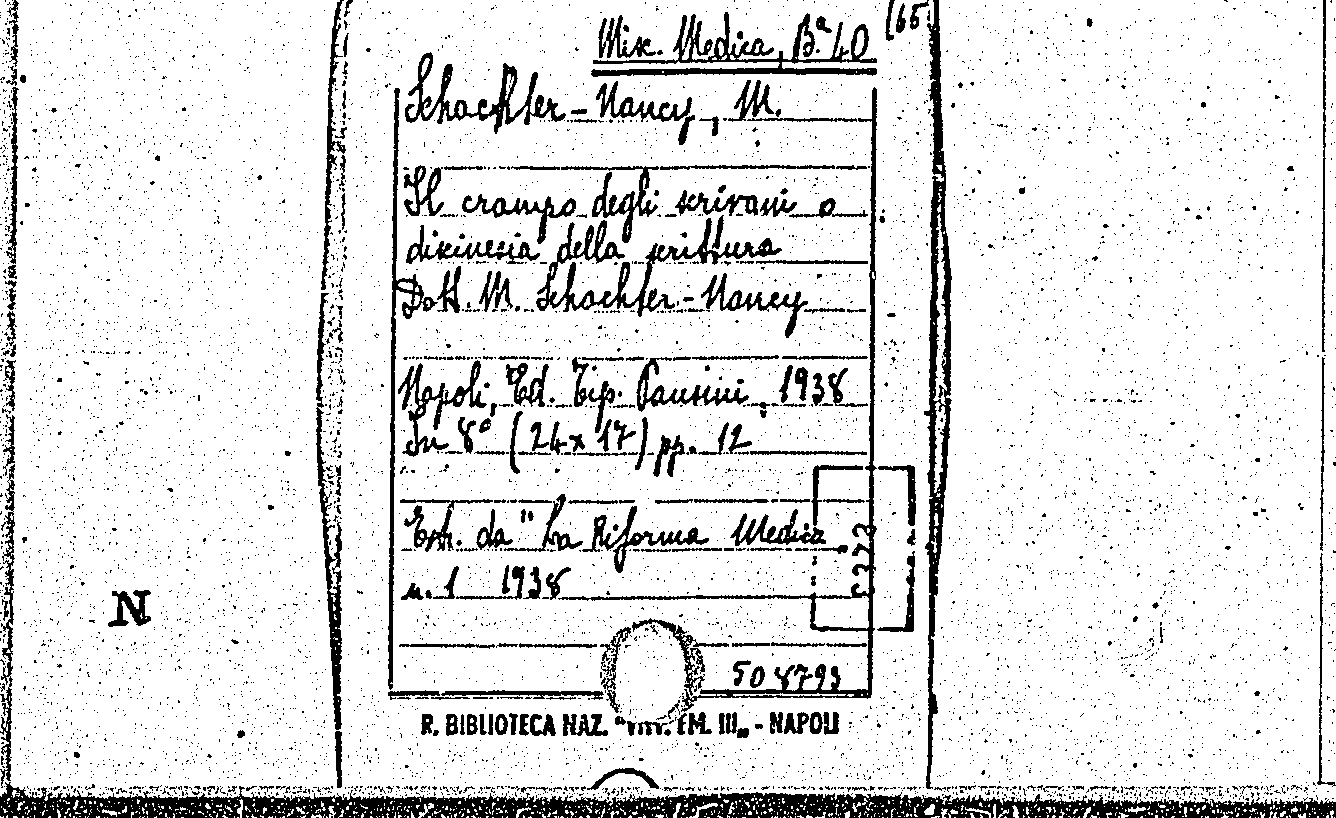 Misc. Medica, B.ª 40 (65
Schachter - Nancy, M.
Il crampo degli scrivani o
disinesia della scrittura
Dott. M. Schachter - Nancy
Napoli, Ed. Tip. Pansini, 1938
In 8° (24x17) pp. 12
Estr. da "La Riforma Medica
n. 1 1938
N
508793
R. BIBLIOTECA NAZ. "VITT. EM. III„ - NAPOLI